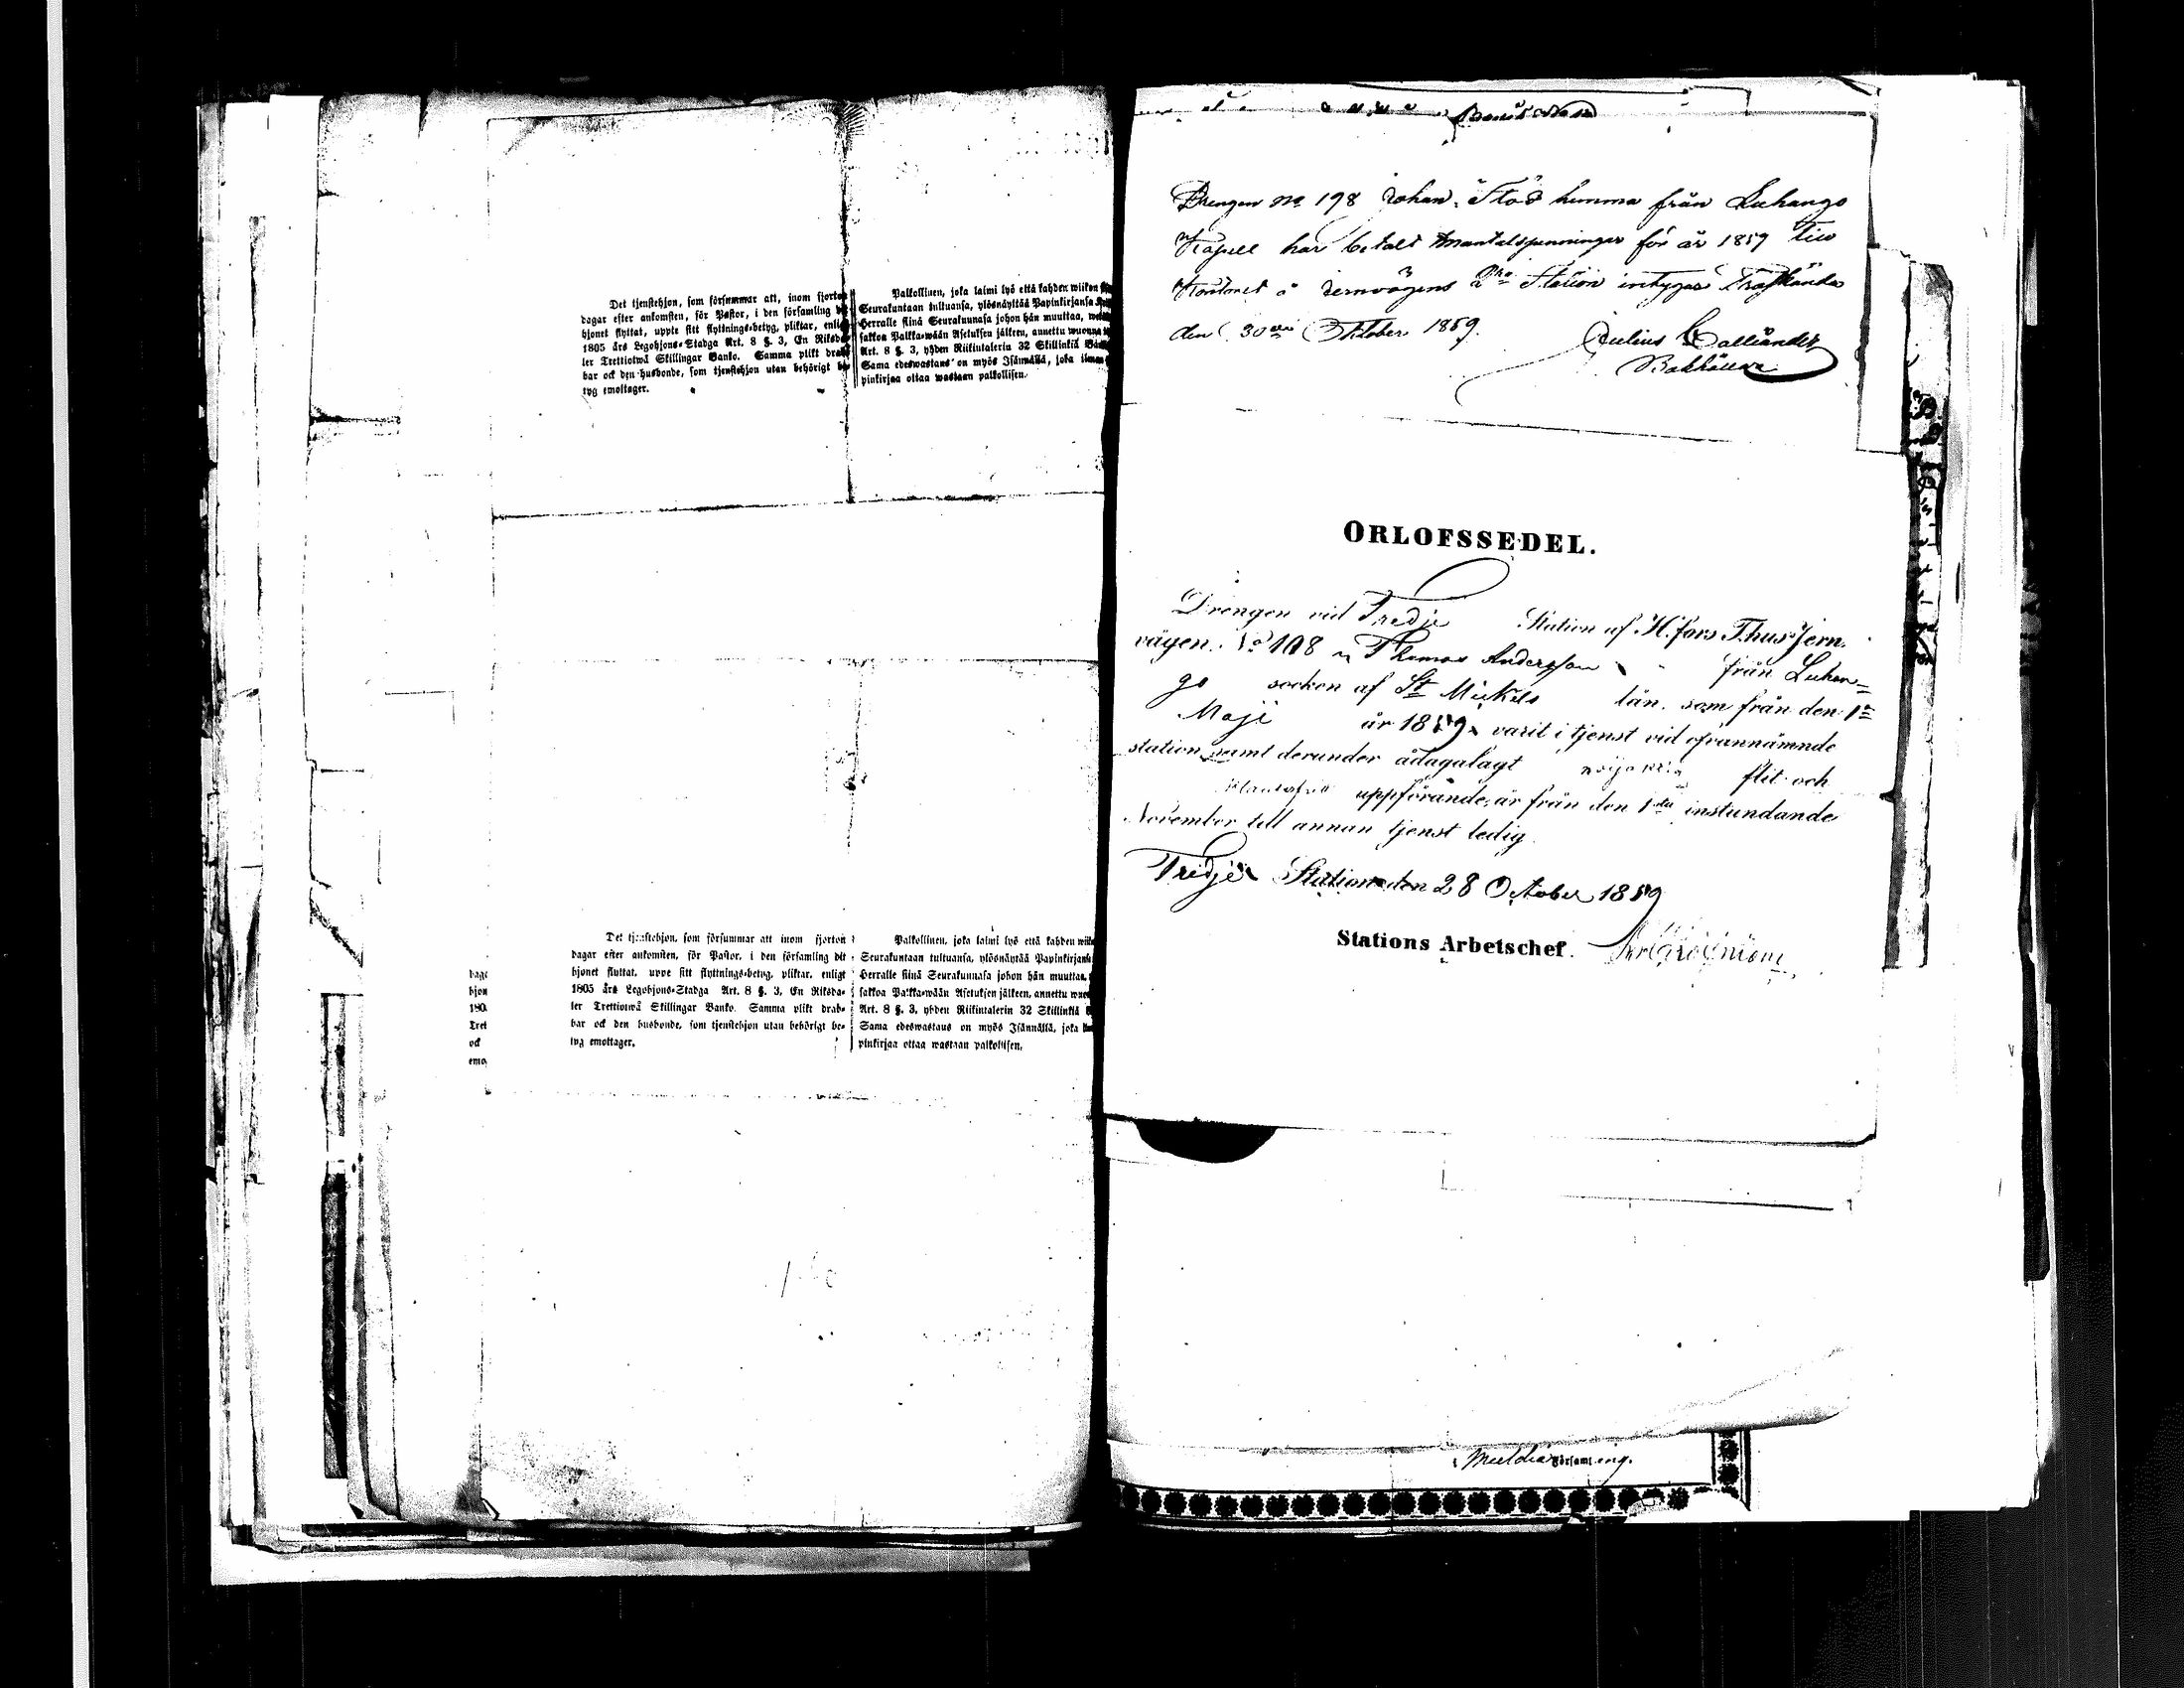 Det tjenstehjon, som försummar att, inom fjorton
dagar efter ankomsten, för Pastor, i den församling
hjonet flyttat, uppte sitt flyttnings-betyg, pliktar, enligt
1805 års Legohjons-Stadga Art. 8 §. 3, En Riksda-
ler Trettiotwå Skillingar Banko. Samma plikt drab-
bar ock den husbonde, som tjenstehjon utan behörigt be-
tyg emottager.
Palkollinen, joka laimi lyö että kahden wiikon
Seurakuntaan tultuansa, ylösnäyttää Papinkirjansa
Herralle siinä Seurakunnasa johon hän muuttaa,
sakkoa Palkka-wään Asetuksen jälkeen, annettu wuonna
Art. 8 §. 3, yhden Riikintalerin 32 Skillinkiä
Sama edeswastaus on myös Isännällä, joka
pinkirjaa ottaa wastaan palkollisen.
Det tjenstehjon, som försummar att inom fjorton
dagar efter ankomsten, för Pastor, i den församling dit
hjonet flyttat, uppe sitt flyttnings-betyg, pliktar, enligt
1805 års Legohjons-Stadga Art. 8 §. 3, En Riksda-
ler Trettiotwå Skillingar Banko. Samma plikt drab-
bar ock den husbonde, som tjenstehjon utan behörigt be-
tyg emottager.
Palkollinen, joka laimi lyö että kahden
Seurakuntaan tultuansa, ylösnäyttää Papinkirjansa
Herralle siinä Seurakunnasa johon hän muuttaa,
sakkoa Palkka-wään Asetuksen jälkeen, annettu
Art. 8 §. 3, yhden Riikintalerin 32 Skillinkiä
Sama edeswastaus on myös Isännällä, joka
pinkirjaa ottaa wastaan palkollisen.
bjon
180
Tret
ock
emo
Drengen No 198 Johan hemma från Luhango
Kapell har betalt Mantalspenningar för år 1859 till
Kontoret å Jernvägens 2dra Station intygar Träskända
den 30 Oktober 1859.
Julius Calliander
Bokhållare
ORLOFSSEDEL.
Drengen vid Tredje Station af H.fors T.hus Jern-
vägen. No 108 Thomas Andersson från Luhan-
go socken af St Mickels län. som från den 1a
Maji år 1859 varit i tjenst vid ofvannämnde
station samt derunder ådagalagt flit och
uppförande, är från den 1sta instundande
November till annan tjenst ledig.
Tredje Station den 28 October 1859
Stations Arbetschef.